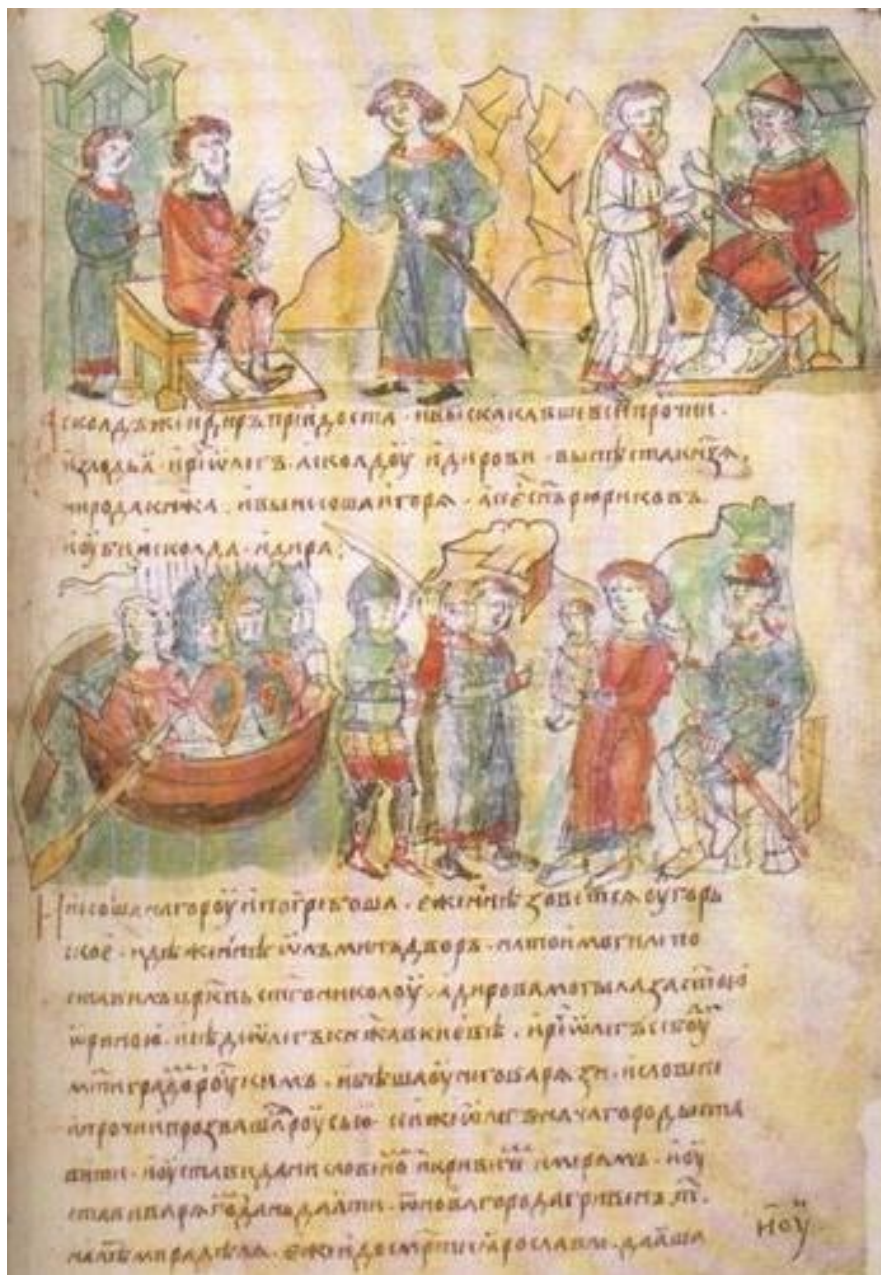 Асколдъ же и диръ прїидоста · и выскакавше вси прочии ·
из лодьѧ · и рⷱ҇е ѡлегъ · асколдоу и дирови · вы нѣста кнѧзѧ ·
ни рода кнѧжа · и вынесоша игорѧ · а се сн҃ъ рюриковъ
и оуби асколда · и дира ·
И несоша на гороу и погребоша · еже нн҃ѣ зоветсѧ оугорь
ское · идѣже нн҃ѣ ѡлъминъ дворъ · на тои могиле по
ставилъ црк҃вь ст҃го николоу · а дирова могыла за ст҃ою
ѡриною · и сѣде ѡлегъ кнѧжа в киевѣ · и рⷱ҇е ѡлегъ се боуⷣ
мт҃и градоⷨ роускимъ · и бѣша оу него варѧзи · и словене
и прочии прозвашаⷭ роусью · се же ѡлегъ нача городы ста
вити · и оустави дани словѣноⷨ и кривичеⷨ и мерѧмъ · и оу
стави варѧгоⷨ дань даѧти · ѿ новагорода гривенъ т҃ ·
на лѣⷮ мира дѣлѧ · еже и до смр҃ти ꙗрославли · даꙗша
и оу